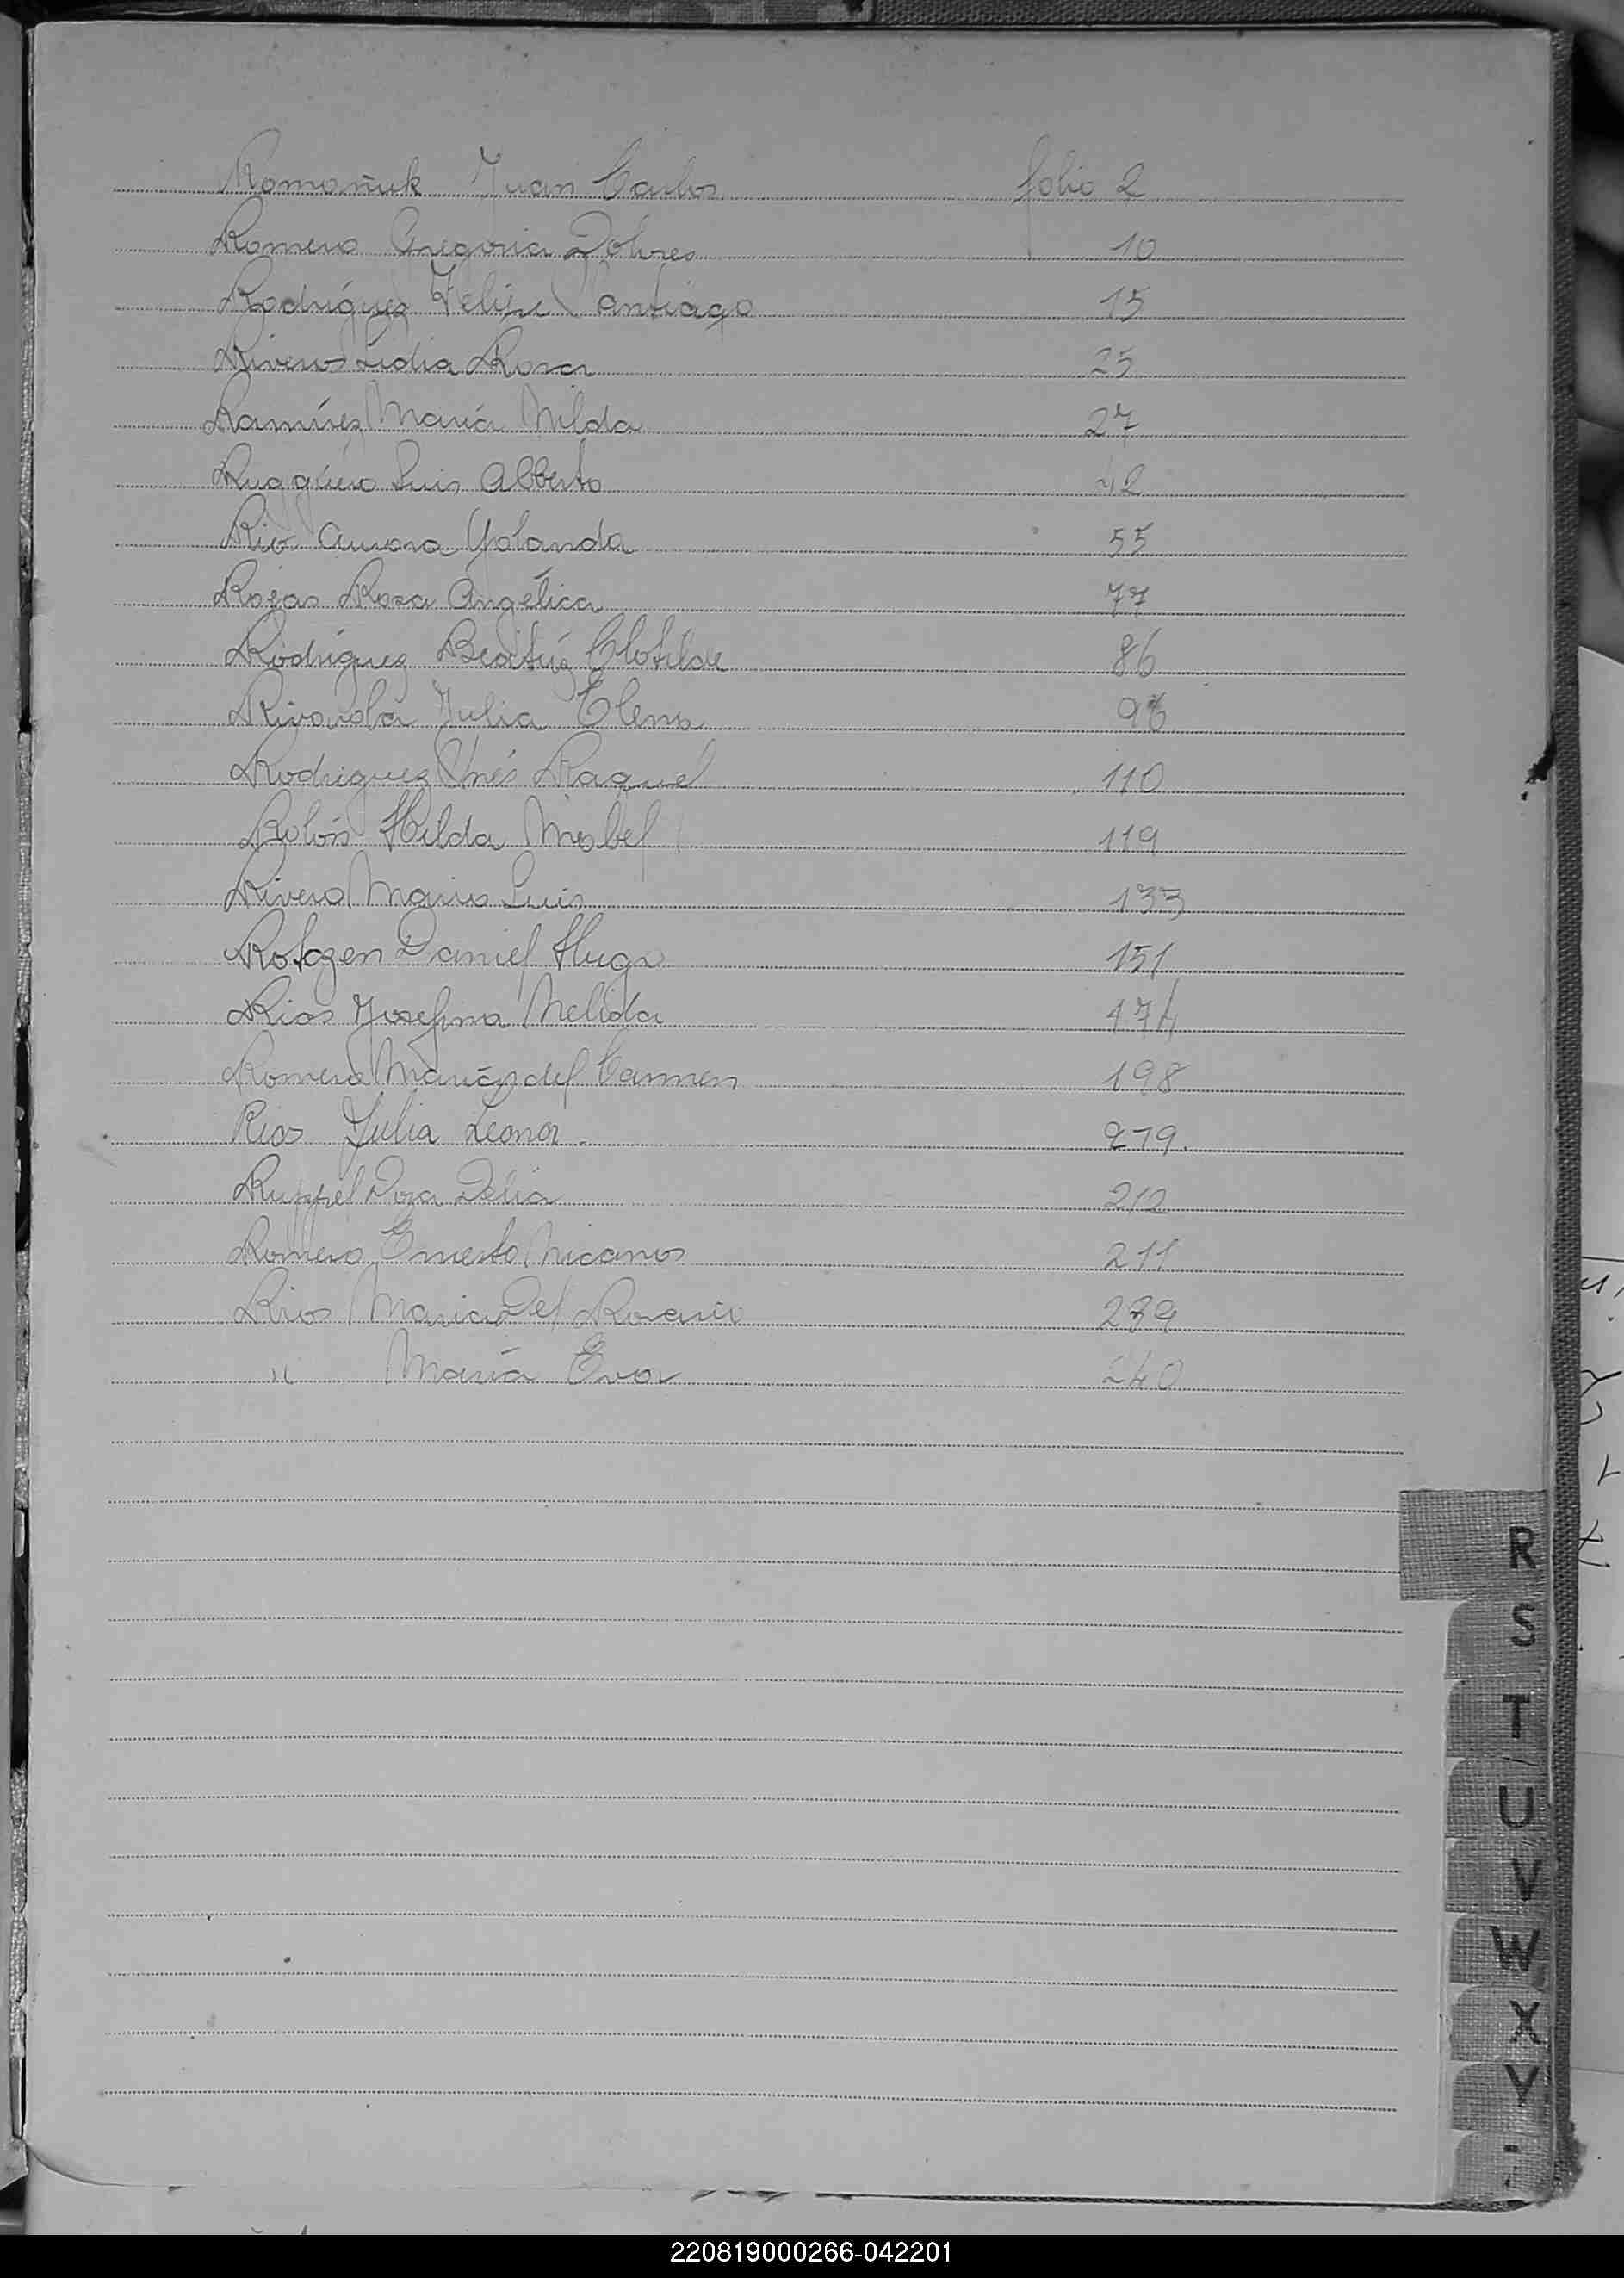 Romañuk Juan Carlos folio 2
Romero Gregoria Dolores 10
Rodríguez Felipe Santiago 15
Riveros Lidia Rosa 25
Ramírez María Nilda 27
Ruggiero Luis Alberto 42
Rio Aurora Yolanda 55
Rojas Rosa Angélica 77
Rodríguez Beatríz Clotilde 86
Rivarola Julia Elena
Rodriguez Inés Raquel 110
Rolón Hilda Misbel 119
Rivero Mario Luis 133
Rotgzen Daniel Hugo 151
Rios Josefina Nelida 174
Romero María del Carmen 198
Rios Julia Leonor. 279.
Ruppel Delia 212
Romero Ernesto Nicanor 211
Rios Maria Del Rosario 239
" María Eva 240
R
S
T
U
V
W
X
Y
220819000266-042201